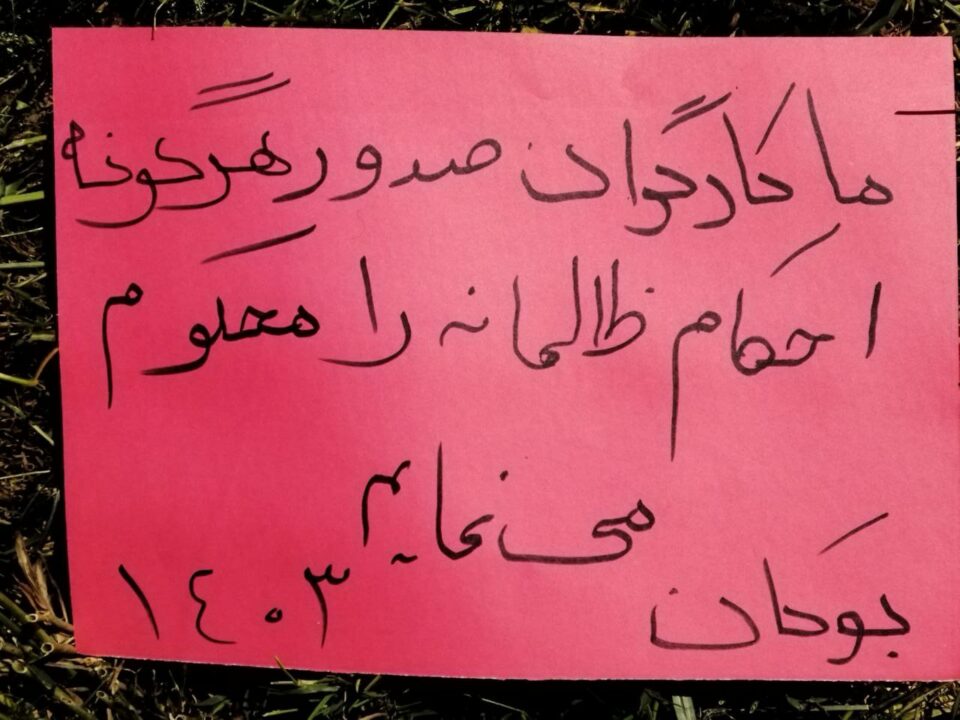 ما کارگران صدور هرگونه
احکام ظالمانه را محکوم
می نمایم
بوکان ۱٤۰۳